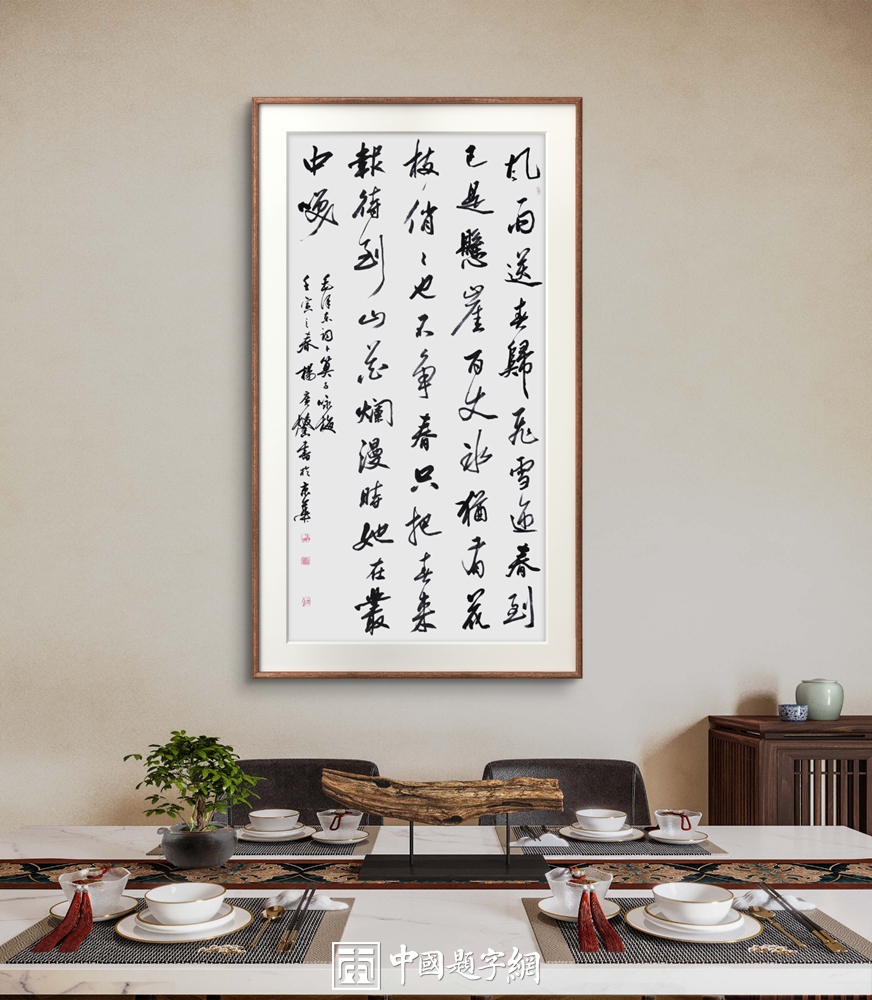 風雨送春歸飛雪迎春到
已是懸崖百丈冰猶有花
枝俏〻也不爭春只把春來
報待到山花爛漫時她在叢
中咲
毛澤東詞卜算子咏梅
壬寅之春楊广馨書於京華
中國題字網